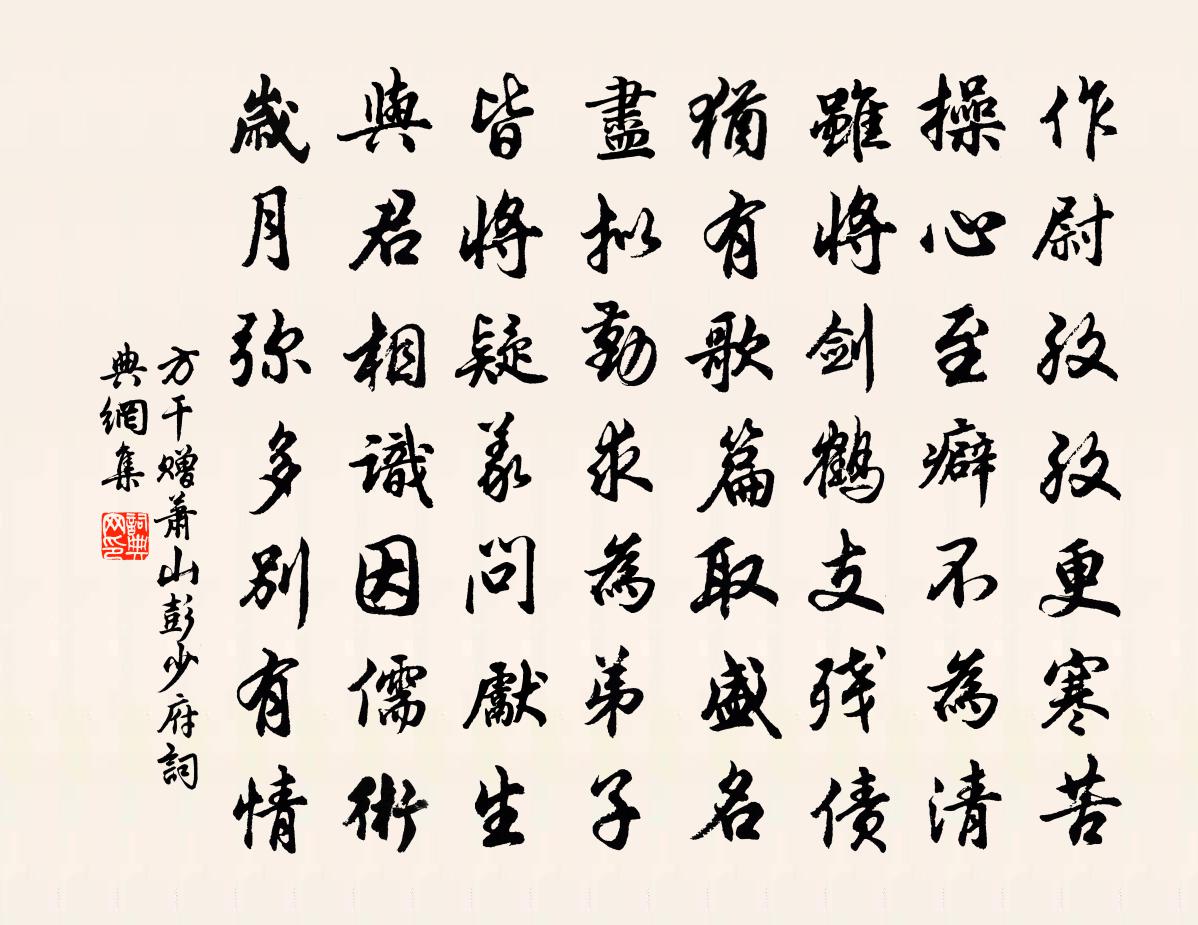 作尉孜孜更寒苦
操心至癖不為清
雖將劍鶴支残债
猶有歌篇取盛名
盡拟勤求為弟子
皆將疑義問獻生
與君相識因儒術
歲月弥多別有情
方干贈蕭山彭少府詞
典網集
詞典
网印